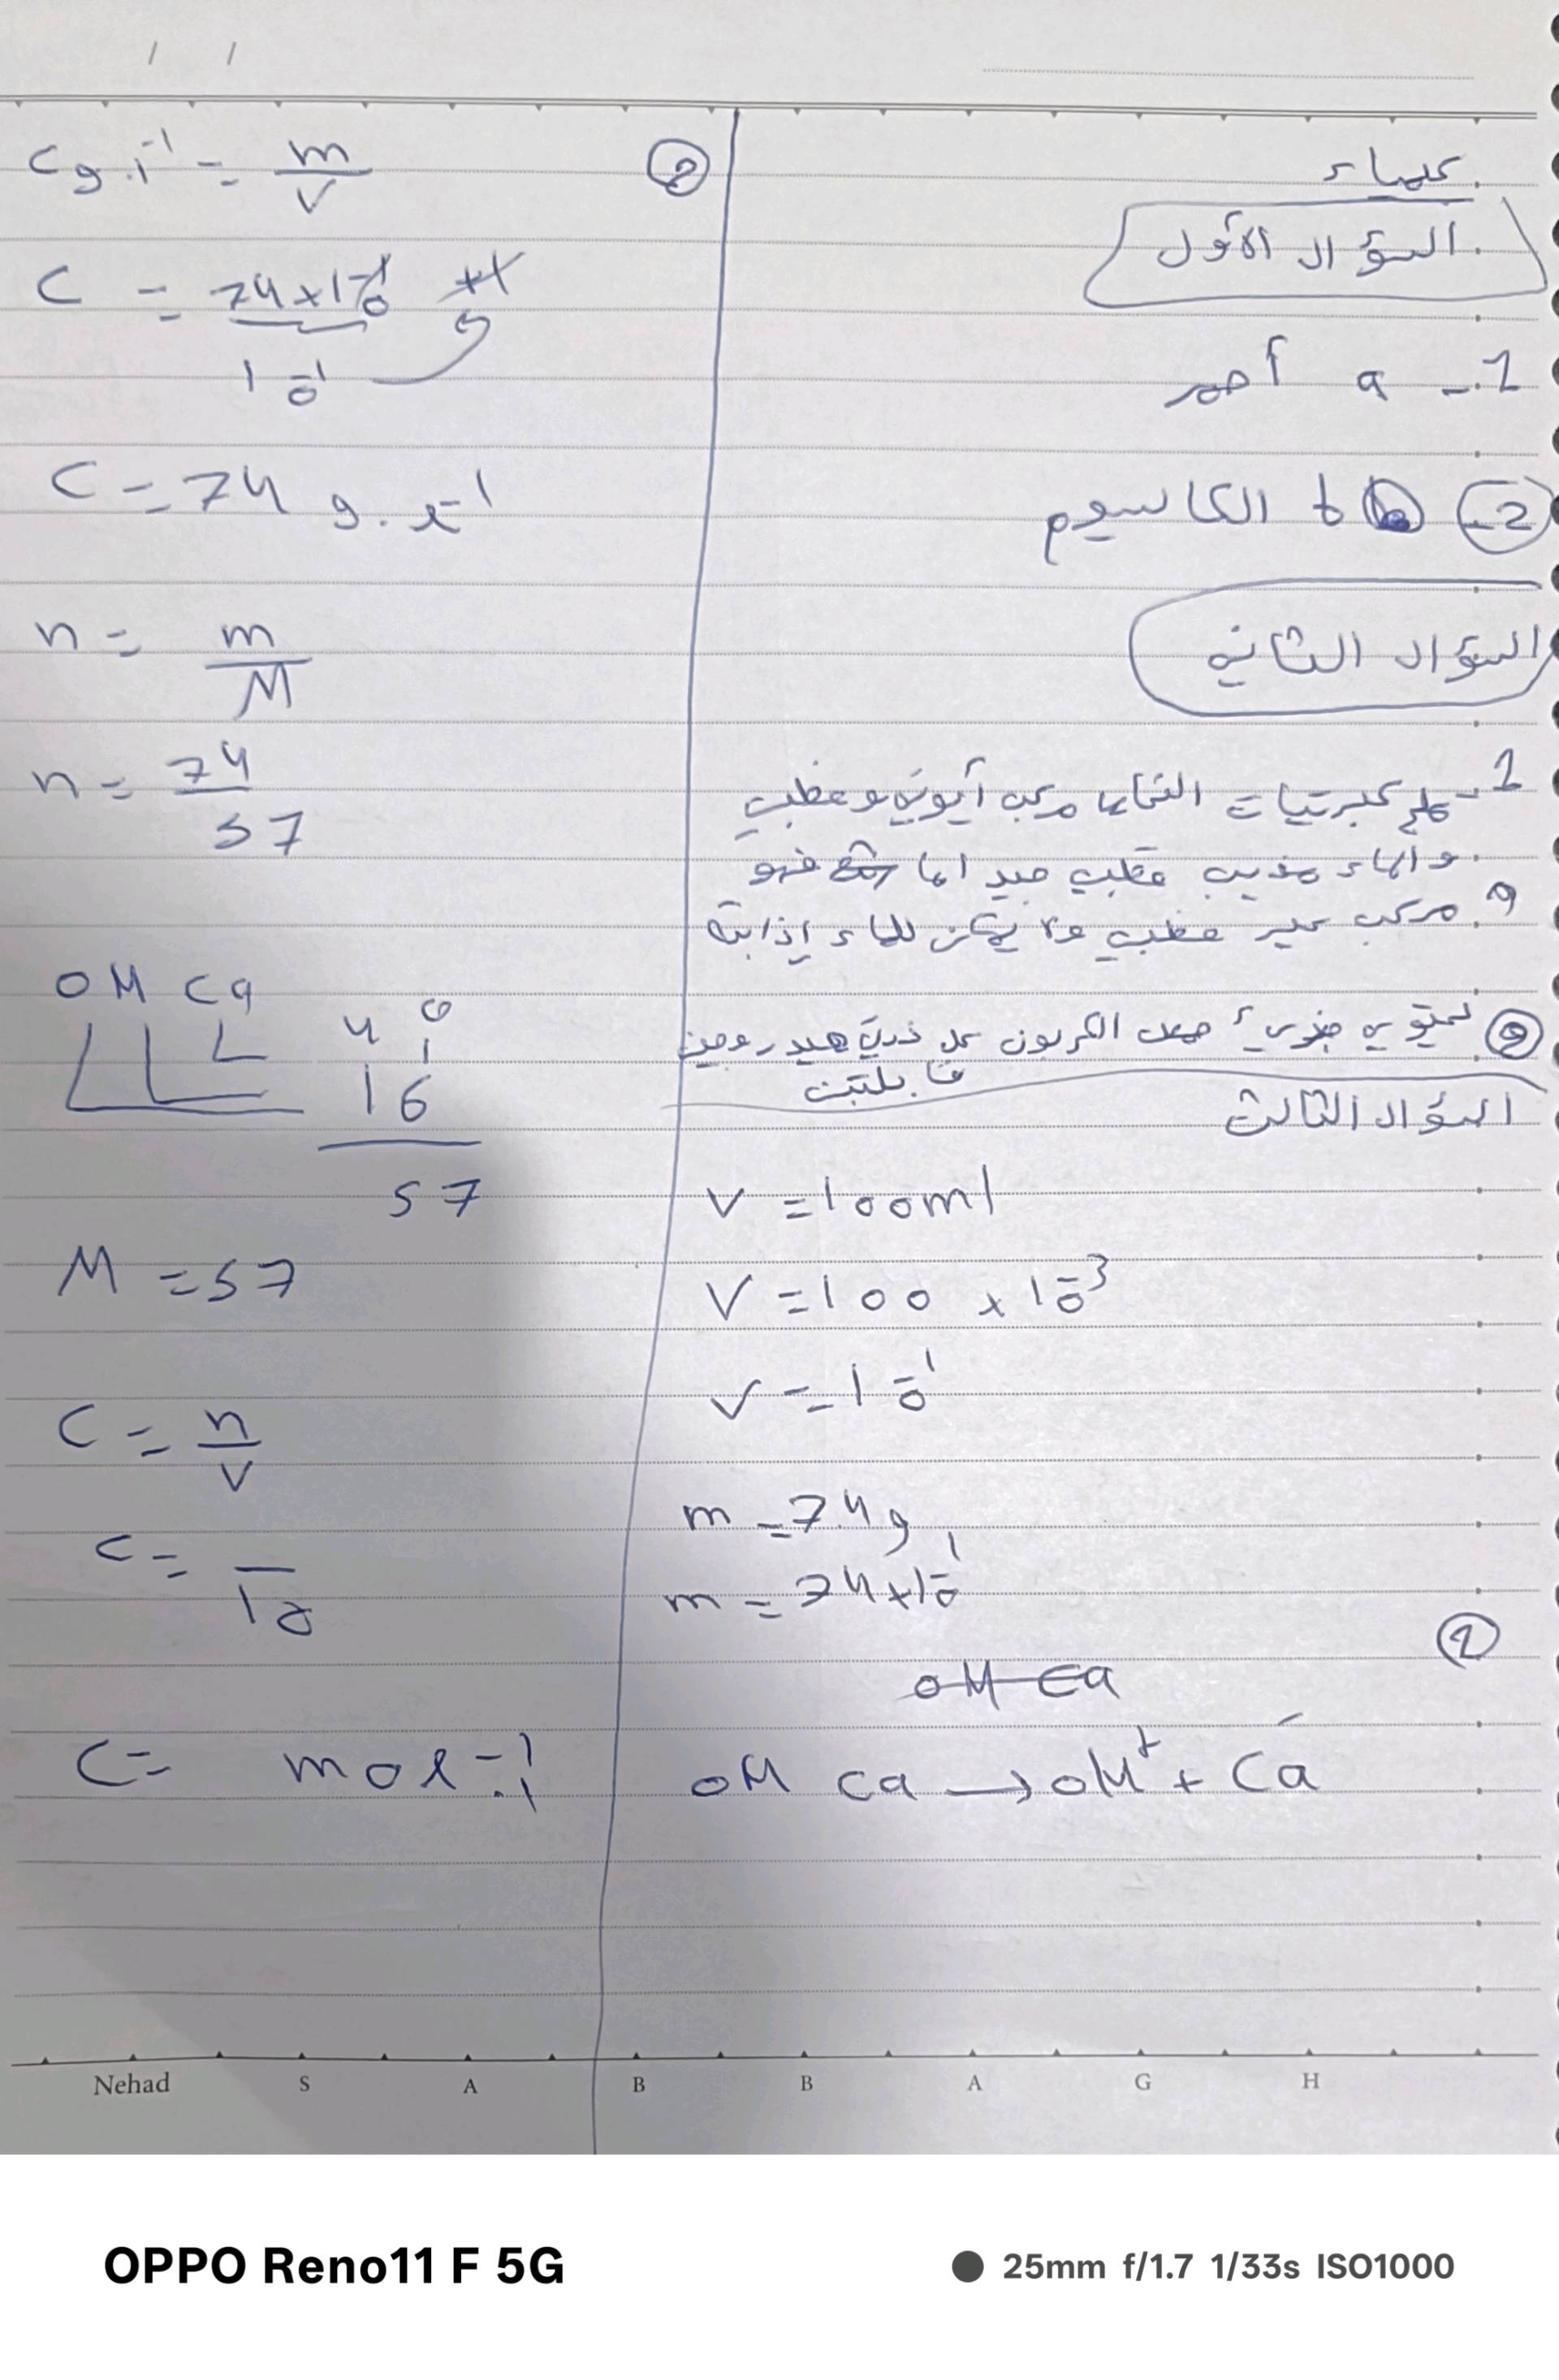 / /
كيمياء
السؤال الأول
1 - a أحمر
2 - b الكالسيوم
السؤال الثاني
1 - ملح كبريتيات النحاس مركب أيوني وقطبي
والماء مذيب قطبي جيد اما فهو
مركب غير قطبي ولا يمكن للماء إذابته
2 يحتوي جزيء حمض الكربون على ذرتي هيدروجين
قابلتين
السؤال الثالث
V = 100ml
V = 100 x 10⁻³
V = 10⁻¹
m = 7.4 g
m = 74 x 10⁻¹
1
OH Ca
OH Ca → OH⁺ + Ca⁻
2
C g.l⁻¹ = m / V
C = 74 x 10⁻¹ / 10⁻¹
C = 74 g.l⁻¹
n = m / M
n = 74 / 57
OH Ca
40
1
16
57
M = 57
C = n / V
C = / 10
C = mol⁻¹
Nehad S A B B A G H
OPPO Reno11 F 5G
25mm f/1.7 1/33s ISO1000